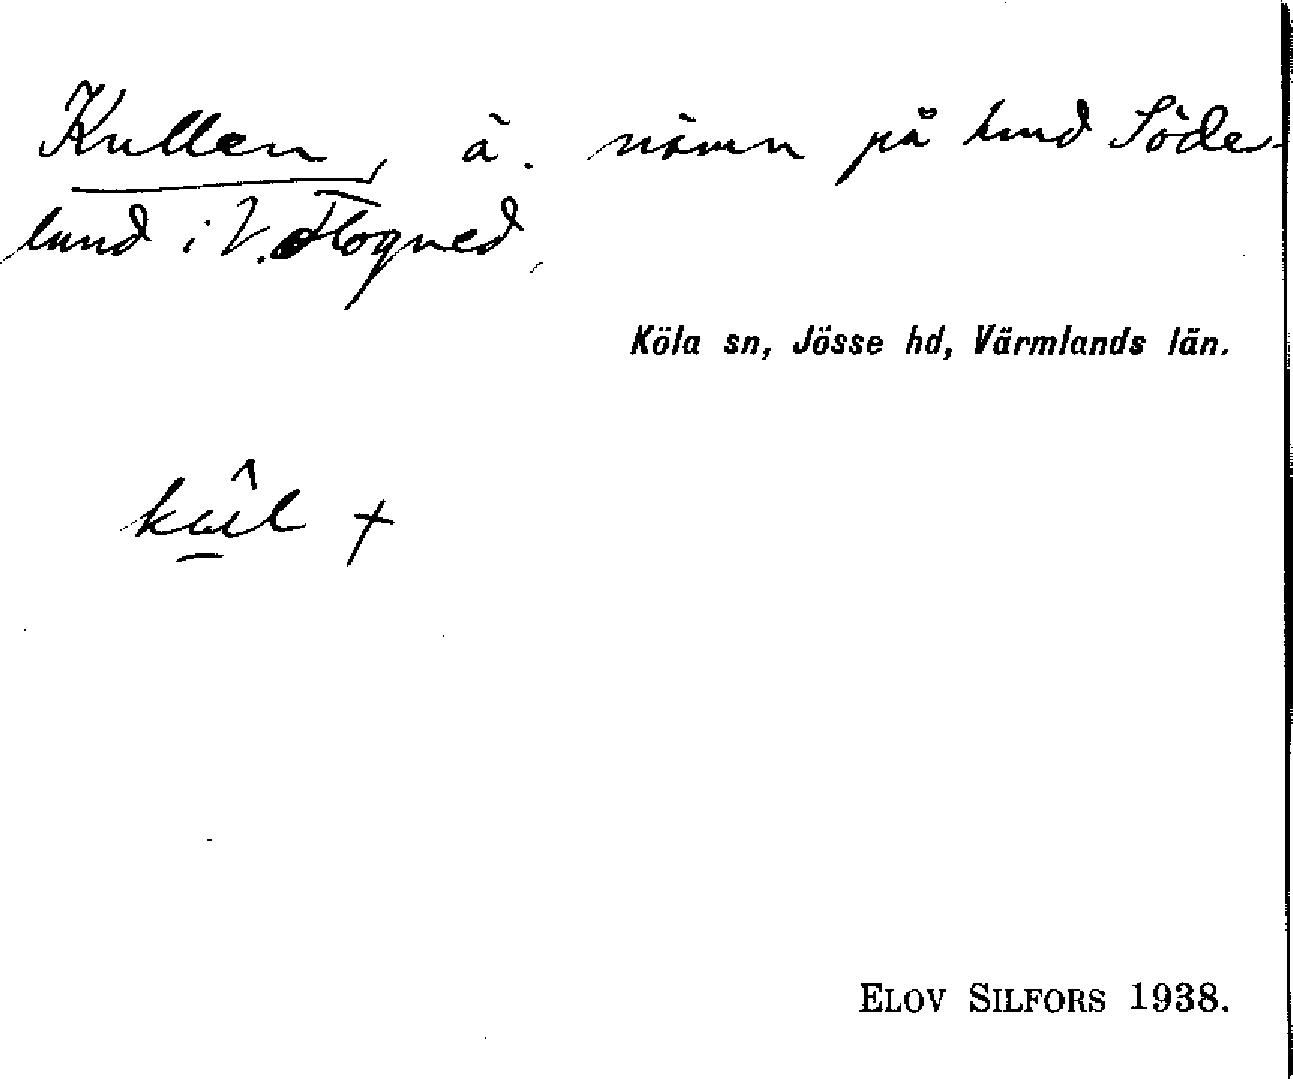 Kullen, ä. nämn på hmd Söder-
lund i V. Flogned,
Köla sn, Jösse hd, Värmlands län.
kûl +
ELOV SILFORS 1938.